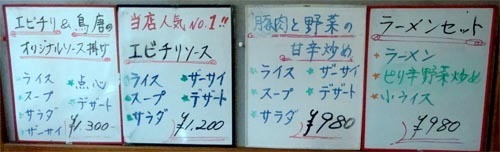 エビチリ&鳥唐の
オリジナルソース掛け
ライス 点心
スープ デザート
サラダ
ザーサイ ¥1,300-
当店人気NO.1!!
エビチリソース
ライス ザーサイ
スープ デザート
サラダ ¥1,200
豚肉と野菜の
甘辛炒め
ライス ザーサイ
スープ デザート
サラダ ¥980
ラーメンセット
ラーメン
ピリ辛野菜炒め
小ライス
¥980